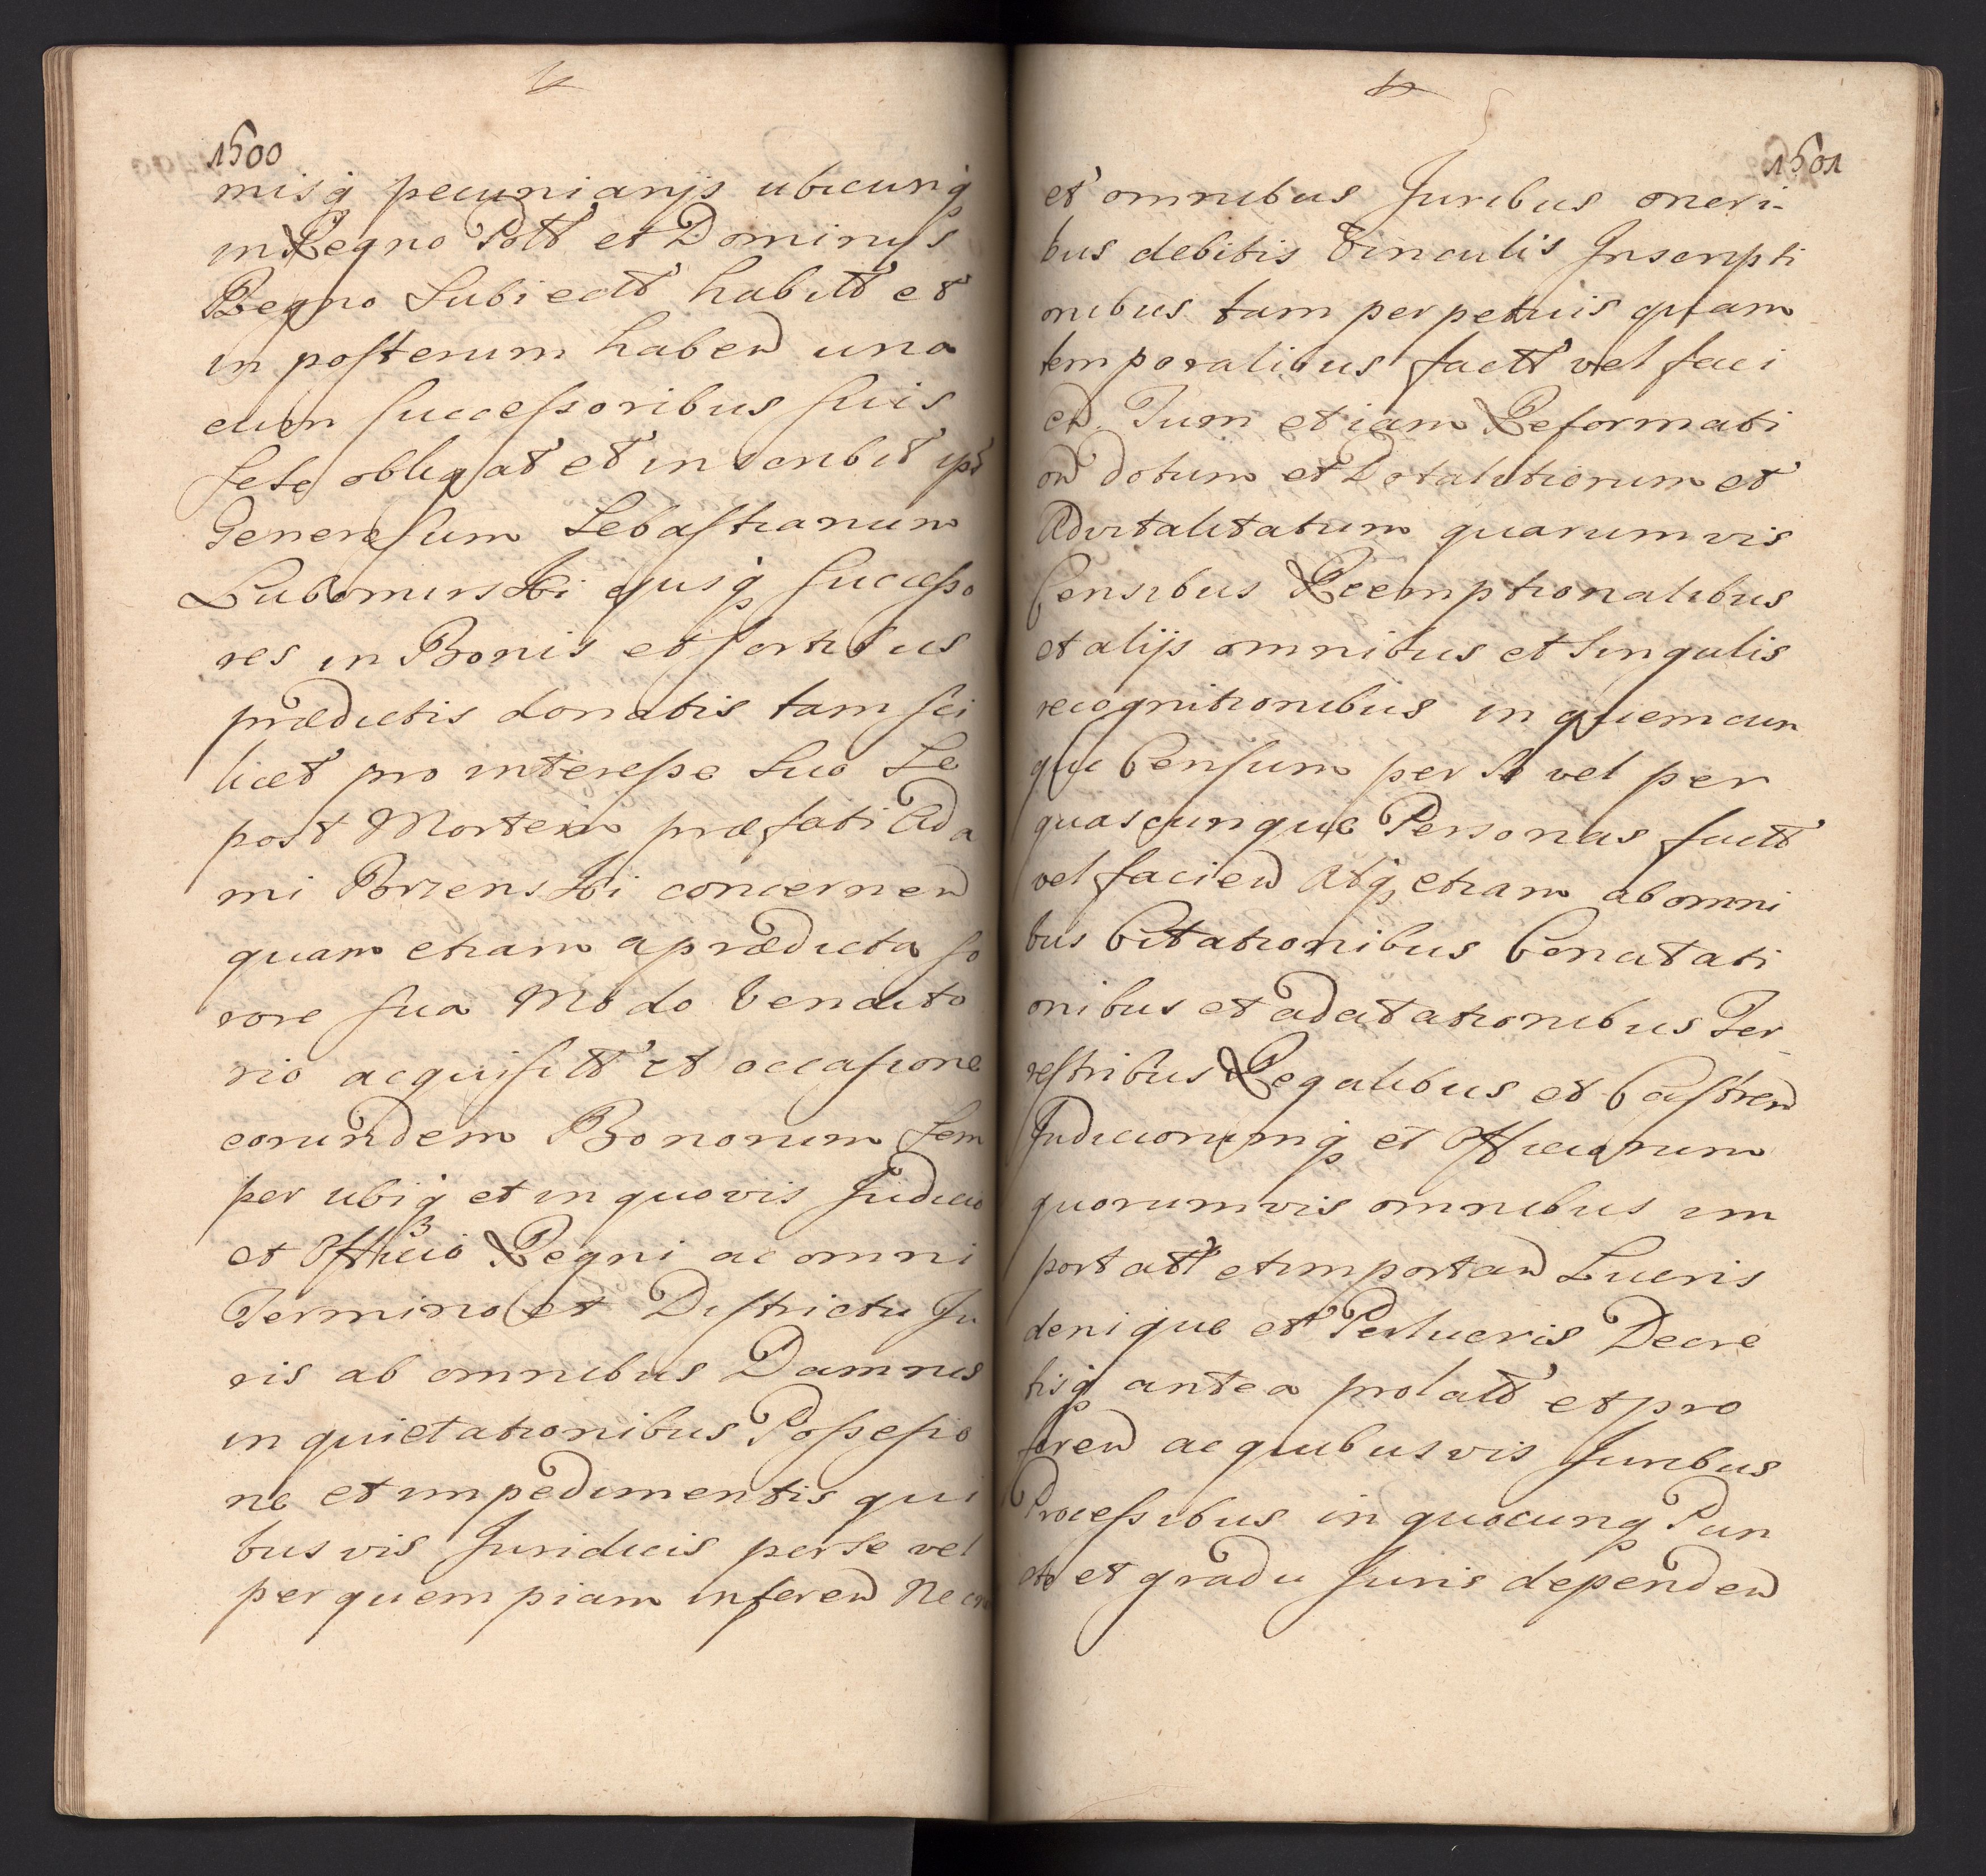 1500
misq pecuniarijs ubicunq
in Regno Poltt et Dominijs
Regno Subiectt habitt et
in posterum haben una
cum successoribus suis
sese obligat et inscribit ipt
Generosum Sebastianum
Lubomirski ejusq successo
res in Bonis et sortibus
prædictis donatis tam sci
licet pro interesse suo Se
post Mortem præfati Ada
mi Porzenski concernen
quam etiam a prædicta so
rore sua Modo Vendito
rio acquisitt et occasione
eorundem Bonorum sem
per ubiq et in quovis Judicio
et Officio Regni ac omni
Termino et Districtu Ju
ris ab omnibus Damnis
inquietationibus Possessio
ne et impedimentis qui
busvis Juridicis per se vel
per quempiam inferen Necn
1501
et omnibus Juribus oneri-
bus debitis Vinculis Inscripti
onibus tam perpetuis quam
temporalibus factt vel faci
en Tum etiam Reformati
on dotum et Dotalitiorum et
Advitalitatum quarumvis
Censibus Reemptionalibus
et alijs omnibus et singulis
recognitionibus in quemcun
que Censum per se vel per
quascunque Personas factt
vel facien Atq etiam ab omni
bus Citationibus Concitati
onibus et adcitationibus Ter
restribus Regalibus et Castren
Judiciorumq et Officiorum
quorumvis omnibus im
portatt et importan Lucris
denique et Perlucris Decre
tisq antea prolatt et pro
feren ac quibusvis Juribus
Processibus in quocunq Pun
cto et gradu Juris dependen